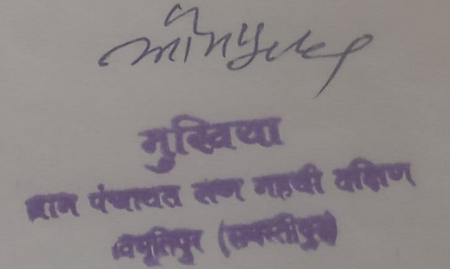 मुखिया
ग्राम पंचायत राज महथी दक्षिण
विभूतिपुर (समस्तीपुर)